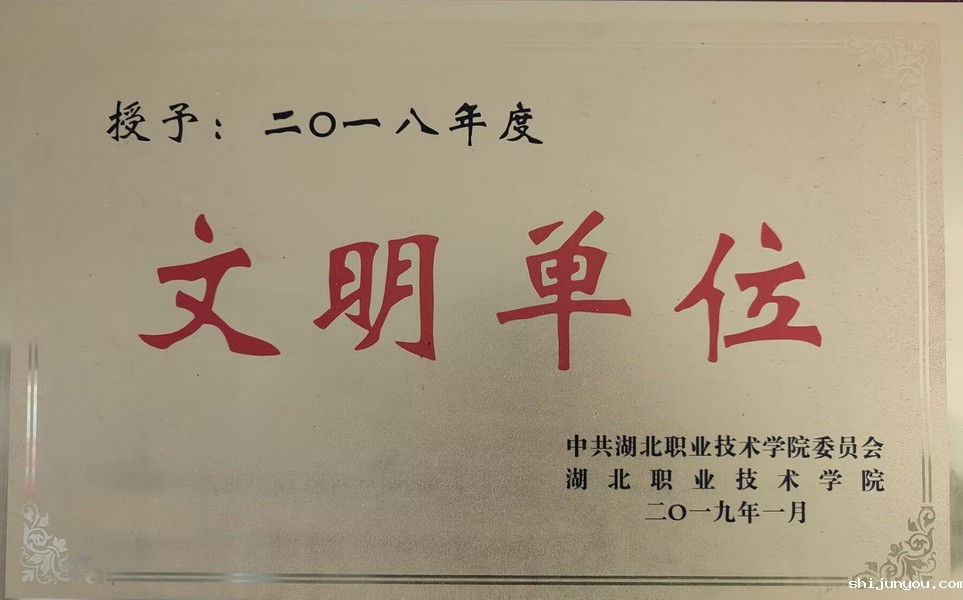 授予：二〇一八年度
文明单位
中共湖北职业技术学院委员会
湖北职业技术学院
二〇一九年一月
shijunyou.com